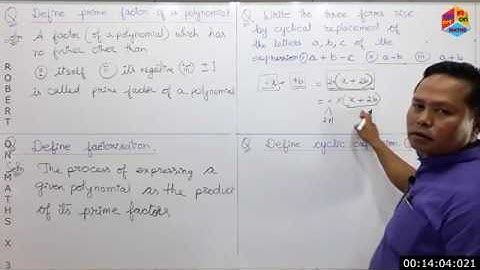 Q Define prime factor of a polynomial
A factor (of a polynomial) which has
no further other than
(i) itself (ii) its negative (iii) ±1
is called prime factor of a polynomial
Q Define factorisation.
The process of expressing a
given polynomial as the product
of its prime factors
Q Write the three forms rise
by cyclical replacement of
the letters a, b, c of the
expression (i) a+b-c (ii) a-b (iii) a+b
= 2(x+2b)
(x+2b)
Q Define cyclic
ROBERT
ON MATHS X 3
MATHS
00:14:04:021